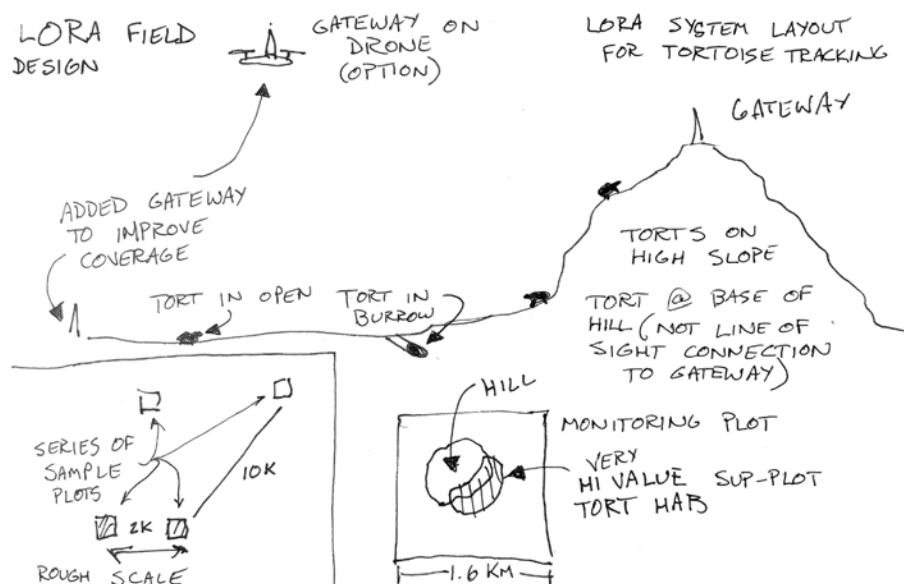 LORA FIELD
DESIGN
GATEWAY ON
DRONE
(OPTION)
LORA SYSTEM LAYOUT
FOR TORTOISE TRACKING
GATEWAY
ADDED GATEWAY
TO IMPROVE
COVERAGE
TORT IN OPEN
TORT IN
BURROW
TORTS ON
HIGH SLOPE
TORT @ BASE OF
HILL (NOT LINE OF
SIGHT CONNECTION
TO GATEWAY)
SERIES OF
SAMPLE
PLOTS
10K
2K
ROUGH SCALE
HILL
MONITORING PLOT
VERY
HI VALUE SUP-PLOT
TORT HAB
1.6 KM